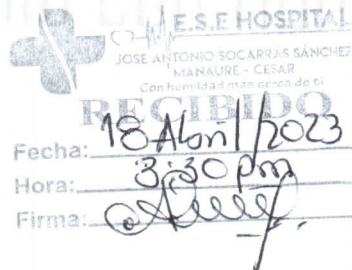 E.S.E HOSPITAL
JOSE ANTONIO SOCARRAS SÁNCHEZ
MANAURE - CESAR
Con humildad mas cerca de ti
RECIBIDO
Fecha: 18 Abril / 2023
Hora: 3:30 pm
Firma: